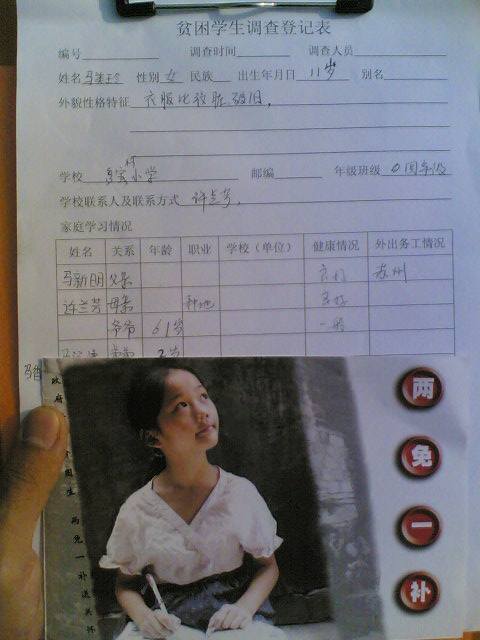 贫困学生调查登记表
编号 调查时间 调查人员
姓名 马美玲 性别 女 民族 出生年月日 11岁 别名
外貌性格特征 衣服比较脏破旧,
学校 村小学 邮编 年级班级 四年级
学校联系人及联系方式 许兰芳,
家庭学习情况
姓名 关系 年龄 职业 学校(单位) 健康情况 外出务工情况
马新明 父亲 良好 苏州
许兰芳 母亲 种地 良好
爷爷 61岁 一般
两
免
一
补
两免一补